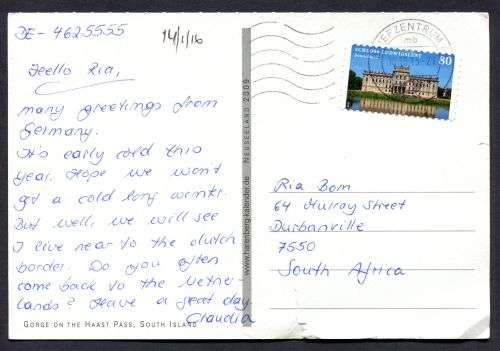 DE-4625555
14/1/16
Hello Ria,
many greetings from
Germany.
It's early cold this
year. Hope we won't
get a cold long winter.
But well, we will see
I live near to the dutch
border. Do you often
come back to the Nether-
lands? Have a great day.
Claudia
GORGE ON THE HAAST PASS, SOUTH ISLAND
www.harenberg-kalender.de NEUSEELAND 2009
EFZENTRUM
mb
SCHLOSS LUDWIGSLUST
80
Ria Bom
64 Murray Street
Durbanville
7550
South Africa